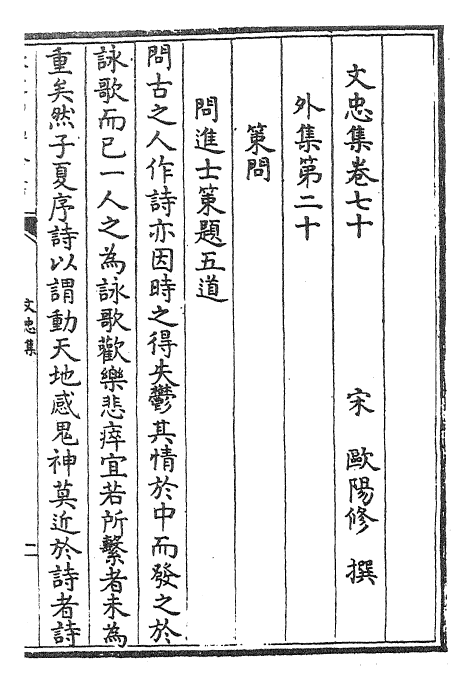 文忠集卷七十 宋 歐陽修 撰
外集第二十
策問
問進士策題五道
問古之人作詩亦因時之得失鬱其情於中而發之於
詠歌而已一人之為詠歌歡樂悲瘁宜若所繫者未為
重矣然子夏序詩以謂動天地感鬼神莫近於詩者詩
文忠集